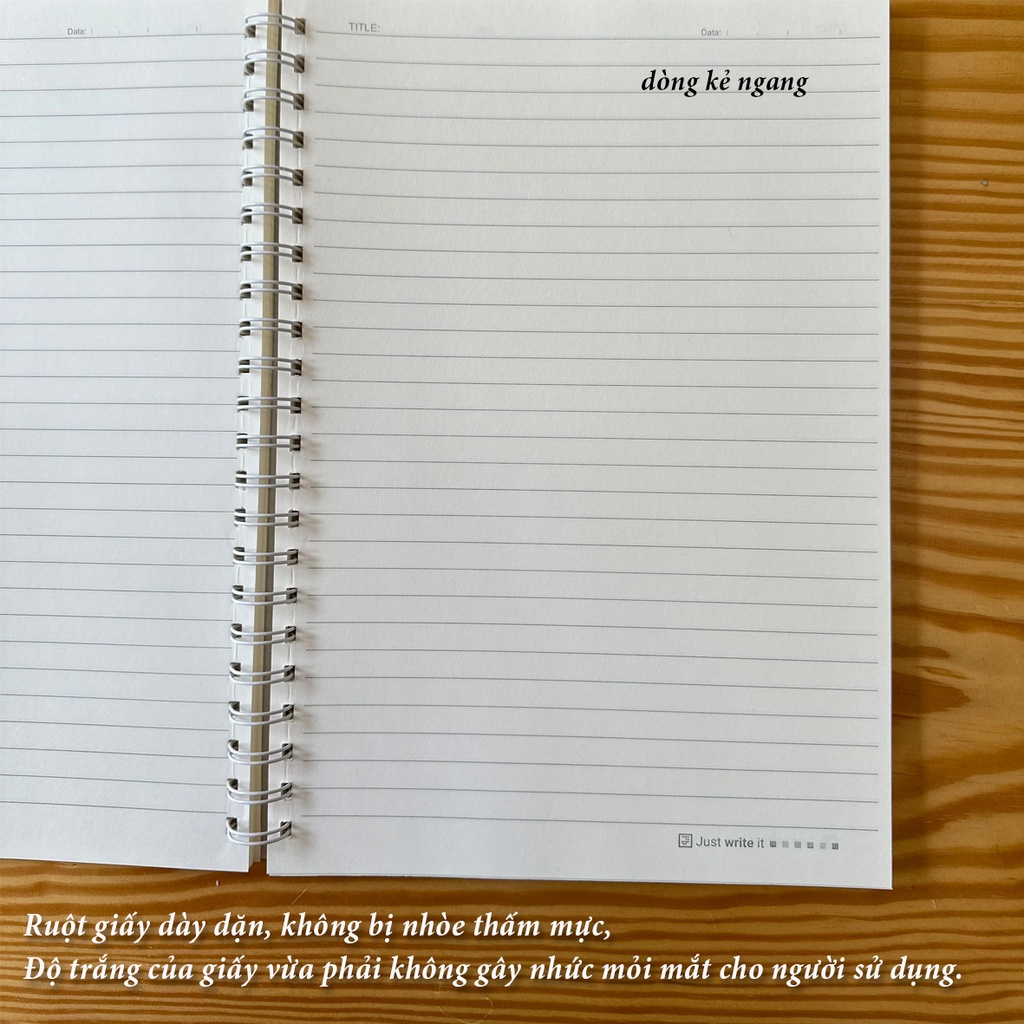 Data:
TITLE:
Data:
dòng kẻ ngang
Just write it
Ruột giấy dày dặn, không bị nhòe thấm mực,
Độ trắng của giấy vừa phải không gây nhức mỏi mắt cho người sử dụng.